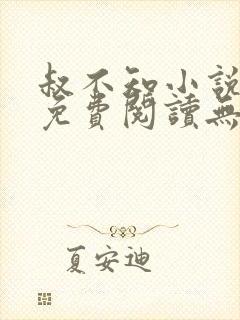 叔不知小說
免費閱讀無
夏安迪